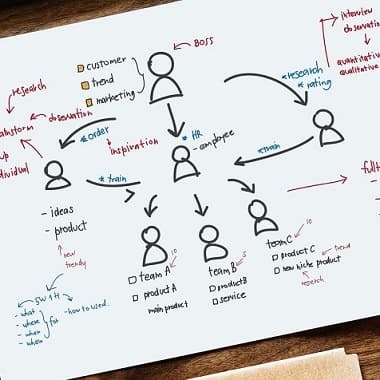 interview
observation
quantitative
qualitative
BOSS
customer
trend
marketing
research
rating
research
observation
order
inspiration
HR
- employee
train
train
- ideas
- product
new
trendy
5W 1H
- what
- where
- when
- how to used.
10
team A
product A
main product
5
team B
product B
service
10
team C
product C
trend
new niche product
research